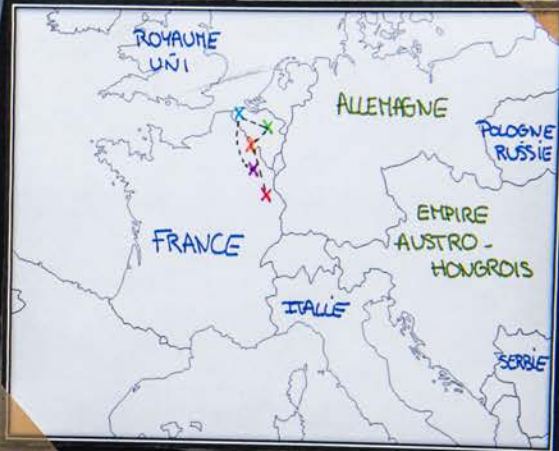 ROYAUME
UNI
ALLEMAGNE
POLOGNE
RUSSIE
EMPIRE
AUSTRO-
HONGROIS
FRANCE
ITALIE
SERBIE